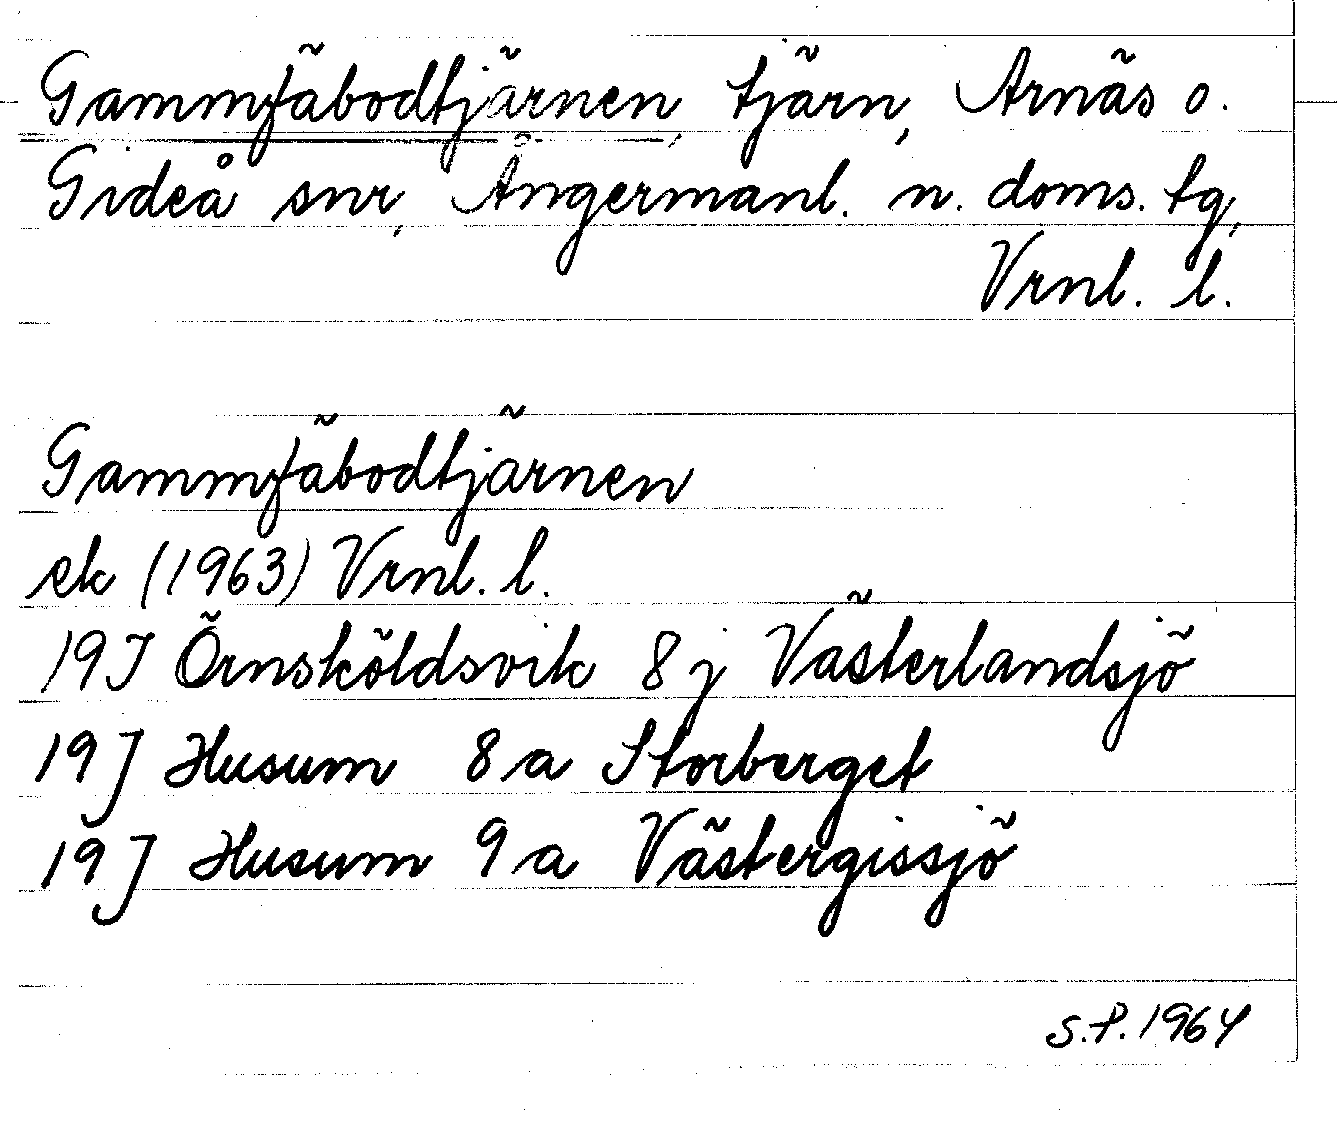 Gammfäbodtjärnen, tjärn, Arnäs o.
Gideå snr, Ångermanl. n. doms. tg,
Vrnl. l.
Gammfäbodtjärnen
ek (1963) Vrnl. l.
19J Örnsköldsvik 8 j Västerlandsjö
19J Husum 8 a Storberget
19J Husum 9 a Västergissjö
S.P. 1964